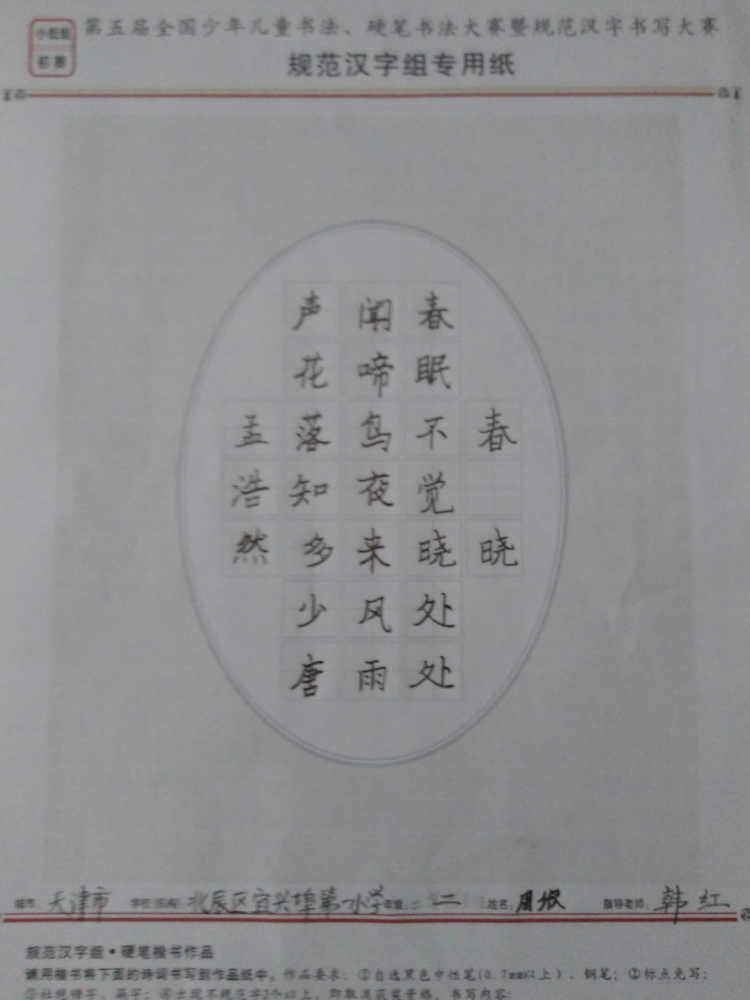 第五届全国少年儿童书法、硬笔书法大赛暨规范汉字书写大赛
初赛
规范汉字组专用纸
春晓
春眠不觉晓处处
闻啼鸟夜来风雨
声花落知多少唐
孟浩然
天津市 北辰区宜兴埠第一小学 年级：二 二 姓名：周 指导老师：韩红
规范汉字组·硬笔楷书作品
请用楷书将下面的诗词书写到作品纸中。作品要求：①自选黑色中性笔(0.7mm以上)、钢笔；②标点免写；
③杜绝错字、漏字；④出现不规范字2个以上，即取消获奖资格。书写内容：